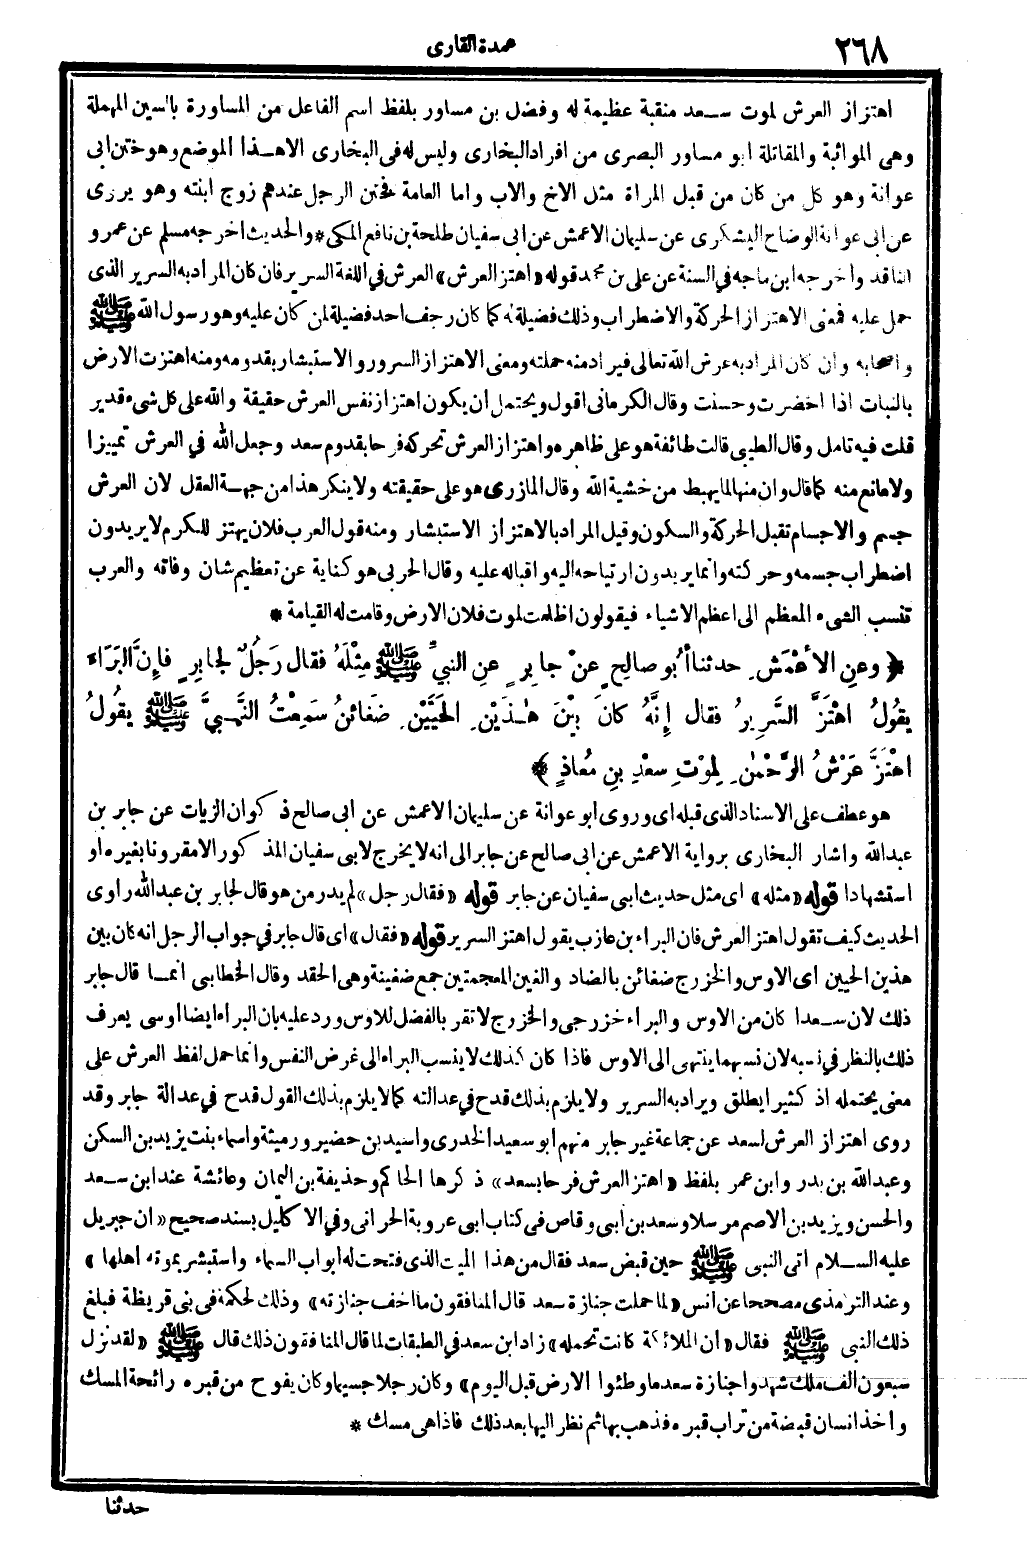 ٢٦٨
عمدة القارى
اهتزاز العرش لموت سعد منقبة عظيمة له وفضل بن مساور بلفظ اسم الفاعل من المساورة بالسين المهملة
وهى المواثبة والمقاتلة ابو مساور البصرى من افراد البخارى وليس له فى البخارى الا هذا الموضع وهو ختن ابى
عوانة وهو كل من كان من قبل المراة مثل الاخ والاب واما العامة فختن الرجل عندهم زوج ابنته وهو يروى
عن ابى عوانة الوضاح اليشكرى عن سليمان الاعمش عن ابى سفيان طلحة بن نافع المكى * والحديث اخرجه مسلم عن عمرو
الناقد واخرجه ابن ماجه فى السنة عن على بن محمد قوله «اهتز العرش» العرش فى اللغة السرير فان كان المراد به السرير الذى
حمل عليه فمعنى الاهتزاز الحركة والاضطراب وذلك فضيلة له كما كان رجف احد فضيلة لمن كان عليه وهو رسول الله ﷺ
واصحابه وان كان المراد به عرش الله تعالى فيراد منه حملته ومعنى الاهتزاز السرور والاستبشار بقدومه ومنه اهتزت الارض
بالنبات اذا اخضرت وحسنت وقال الكرمانى اقول ويحتمل أن يكون اهتزاز نفس العرش حقيقة والله على كل شىء قدير
قلت فيه تامل وقال الطيبى قالت طائفة هو على ظاهره واهتزاز العرش تحركه فرحا بقدوم سعد وجعل الله في العرش تمييزا
ولا مانع منه كما قال وان منها لما يهبط من خشية الله وقال المازرى هو على حقيقته ولا ينكر هذا من جهة العقل لان العرش
جسم والاجسام تقبل الحركة والسكون وقيل المراد بالاهتزاز الاستبشار ومنه قول العرب فلان يهتز للكرم لا يريدون
اضطراب جسمه وحركته وانما يريدون ارتياحه اليه واقباله عليه وقال الحربى هو كناية عن تعظيم شان وفاته والعرب
تنسب الشىء المعظم الى اعظم الاشياء فيقولون اظلمت لموت فلان الارض وقامت له القيامة *
﴿ وعنِ الأعْمَشِ حدثنا أبُو صالحٍ عنْ جابِرٍ عنِ النبىِّ ﷺ مِثْلَهُ فقال رَجُلٌ لجابِرٍ فإنَّ البَرَاءَ
يقُولُ اهْتَزَّ السَّرِيرُ فقال إنَّهُ كانَ بيْنَ هٰذَيْنِ الحَيَّيْنِ ضَغائنُ سَمِعْتُ النَّبِىَّ ﷺ يقُولُ
اهْتَزَّ عَرْشُ الرَّحْمٰنِ لِمَوْتِ سعْدِ بنِ مُعاذٍ * ﴾
هو عطف على الاسناد الذى قبله اى وروى ابو عوانة عن سليمان الاعمش عن ابى صالح ذكوان الزيات عن جابر بن
عبدالله واشار البخارى برواية الاعمش عن ابى صالح عن جابر الى انه لا يخرج لابى سفيان المذكور الا مقرونا بغيره او
استشهادا قوله «مثله» اى مثل حديث ابى سفيان عن جابر قوله «فقال رجل» لم يدر من هو قال لجابر بن عبد الله راوى
الحديث كيف تقول اهتز العرش فان البراء بن عازب يقول اهتز السرير قوله «فقال» اى قال جابر فى جواب الرجل انه كان بين
هذين الحيين اى الاوس والخزرج ضغائن بالضاد والغين المعجمتين جمع ضغينة وهى الحقد وقال الخطابى انما قال جابر
ذلك لان سعدا كان من الاوس والبراء خزرجى والخزرج لا تقر بالفضل للاوس ورد عليه بان البراء ايضا اوسى يعرف
ذلك بالنظر فى نسبه لان نسبهما ينتهى الى الاوس فاذا كان كذلك لا ينسب البراء الى غرض النفس وانما حمل لفظ العرش على
معنى يحتمله اذ كثيرا يطلق ويراد به السرير ولا يلزم بذلك قدح فى عدالته كما لا يلزم بذلك القول قدح في عدالة جابر وقد
روى اهتزاز العرش لسعد عن جماعة غير جابر منهم ابو سعيد الخدرى واسيد بن حضير ورميثة واسماء بنت يزيد بن السكن
وعبدالله بن بدر وابن عمر بلفظ «اهتز العرش فرحا بسعد» ذكرها الحاكم وحذيفة بن اليمان وعائشة عند ابن سعد
والحسن ويزيد بن الاصم مرسلا وسعد بن ابى وقاص فى كتاب ابى عروبة الحرانى وفى الاكليل بسند صحيح «ان جبريل
عليه السلام اتى النبى ﷺ حين قبض سعد فقال من هذا الميت الذى فتحت له ابواب السماء واستبشر بموته اهلها»
وعند الترمذى مصححا عن انس «لما حملت جنازة سعد قال المنافقون ما اخف جنازته» وذلك لحكمة فى بنى قريظة فبلغ
ذلك النبى ﷺ فقال «ان الملائكة كانت تحمله» زاد ابن سعد فى الطبقات لما قال المنافقون ذلك قال ﷺ «لقد نزل
سبعون الف ملك شهدوا جنازة سعد ما وطئوا الارض قبل اليوم» وكان رجلا جسيما وكان يفوح من قبره رائحة المسك
واخذ انسان قبضة من تراب قبره فذهب بها ثم نظر اليها بعد ذلك فاذا هى مسك *
حدثنا